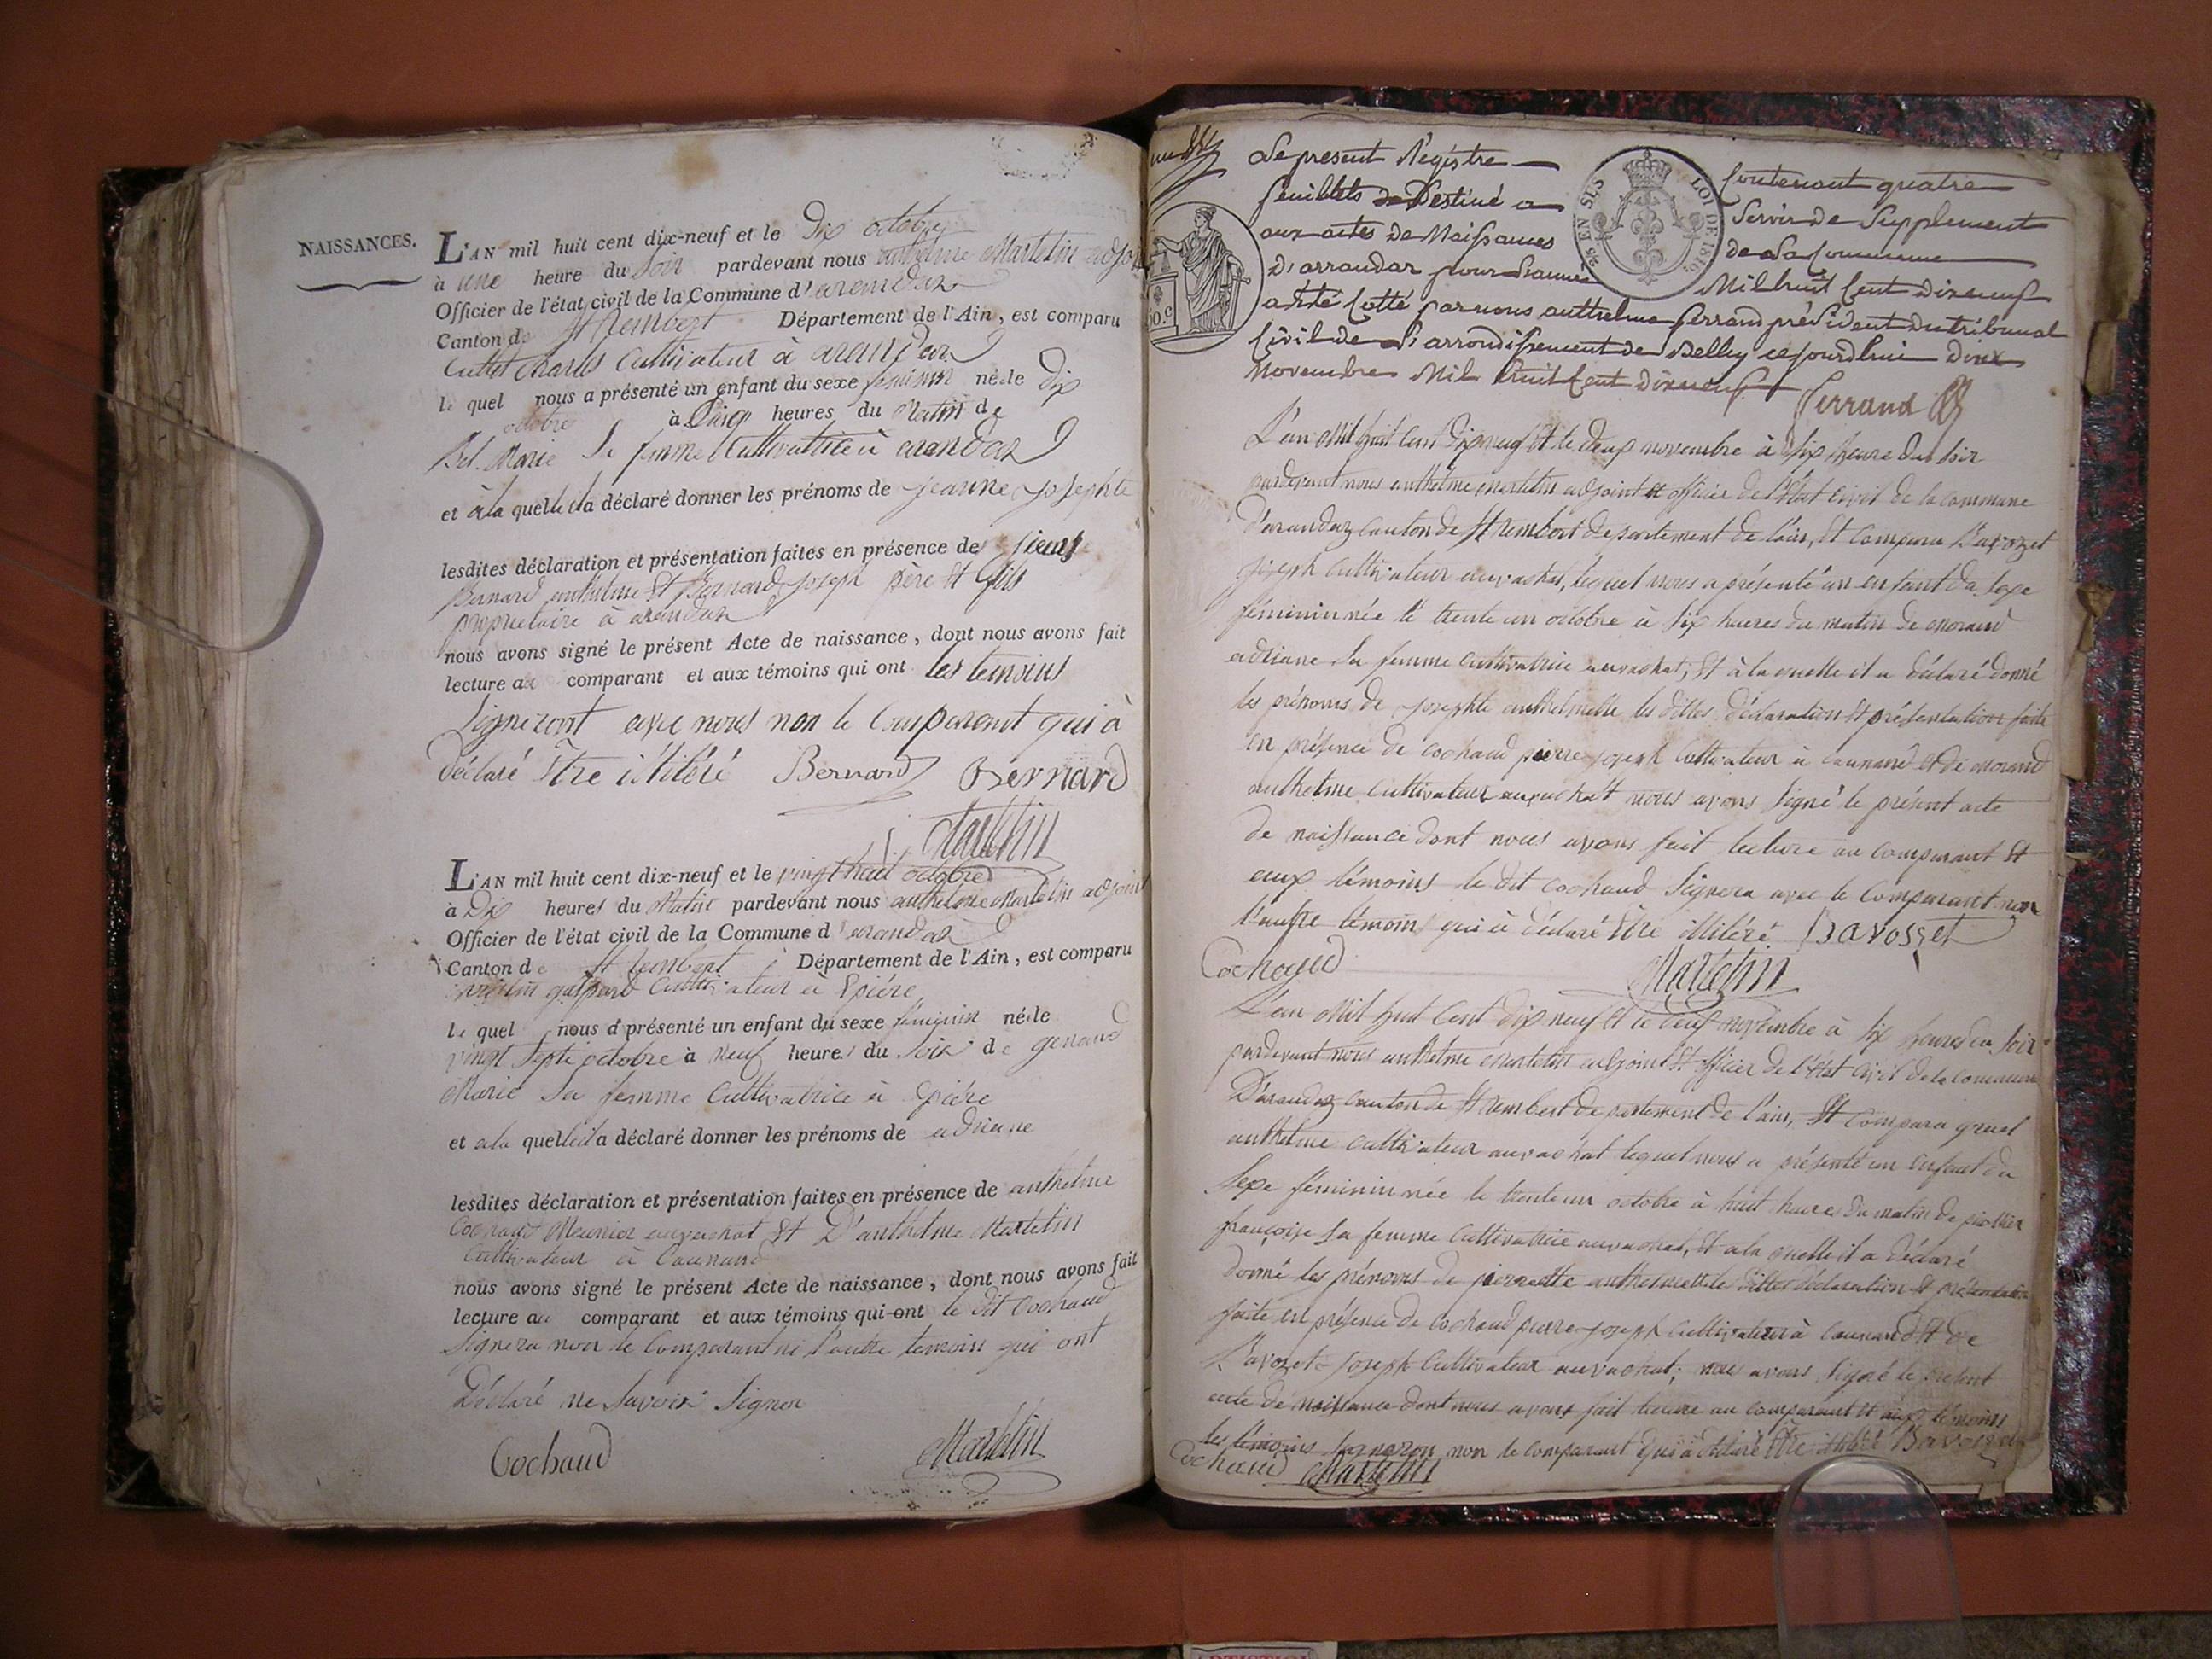 NAISSANCES.
L'AN mil huit cent dix-neuf et le Dix octobre
à une heure du Soir pardevant nous anthelme Martelin adjoint
Officier de l'état civil de la Commune d'arandaz
Canton de St Rembert Département de l'Ain, est comparu
Cuttet Charles Cultivateur à arandaz
le quel nous a présenté un enfant du sexe feminin née le Dix
octobre à Cinq heures du Matin de
Bel. Marie Sa femme Cultivatrice à arandaz
et à la quelle il a déclaré donner les prénoms de jeanne josephte
lesdites déclaration et présentation faites en présence de sieurs
Bernard anthelme et Bernard joseph père et fils
propriétaire à arandaz
nous avons signé le présent Acte de naissance, dont nous avons fait
lecture au comparant et aux témoins qui ont les temoins
Signeront avec nous non le Comparant qui à
déclaré Être illitéré Bernard Bernard
Martelin
L'AN mil huit cent dix-neuf et le vingt huit octobre
à Dix heures du Matin pardevant nous anthelme Martelin adjoint
Officier de l'état civil de la Commune d'arandaz
Canton de St Rembert Département de l'Ain, est comparu
gaspard Cultivateur à Epiére
le quel nous a présenté un enfant du sexe féminin née le
vingt Sept octobre à neuf heures du Soir de genand
Marie Sa femme Cultivatrice à Epiére
et a la quelle il a déclaré donner les prénoms de adriane
lesdites déclaration et présentation faites en présence de anthelme
Cochaud Meunier auvachat et D'anthelme Martelin
Cultivateur à Caunand
nous avons signé le présent Acte de naissance, dont nous avons fait
lecture au comparant et aux témoins qui ont le dit Cochaud
Signera non le Comparant ni l'autre temoin qui ont
Déclaré ne Savoir Signer
Cochaud Martelin
Le present Régistre Contenant quatre
feuillets Destiné a Servir de Supplement
aux actes de Naissances de La Commune
D'arrandas pour L'année Mil huit Cent Dixneuf
25 EN SUS LOI DE 1816.
50.c
a été Cotté par nous anthelme ferrand président du tribunal
Civil de L'arrondissement de Belley ce jourdhui Deux
Novembre Mil huit Cent Dixneuf
ferrand
L'an Mil huit Cent Dix neuf et le Deux novembre à Six heure du soir
pardevant nous anthelme Martelin adjoint et officier de l'état Civil de la commune
D'arandaz Canton de St Rembert departement de l'ain, et Comparu Davozet
joseph Cultivateur auvachat, lequel nous a présenté un enfant du sexe
féminin née le trente un octobre à Six heures du matin de morand
adriane Sa femme Cultivatrice auvachat; et à la quelle il a déclaré donné
les prénoms de josephte anthelmette les dittes déclaration et présentation faite
en présence de Cochaud pierre joseph Cultivateur à Caunand et de morand
anthelme Cultivateur auvachatt nous avons Signé le présent acte
de naissance dont nous avons fait lecture au Comparant et
aux témoins le dit Cochaud Signera avec le Comparant non
l'autre témoins qui à déclaré Être illitéré Davosset
Cochaud Martelin
L'an Mil huit Cent Dix neuf et le deux novembre à Six heures du Soir
pardevant nous anthelme Martelin adjoint et officier de l'état Civil de la commune
D'arandaz Canton de St Rembert departement de l'ain, et Compara gruel
anthelme Cultivateur auvachat lequel nous a présenté un enfant du
Sexe féminin née le trente un octobre à huit heures du matin de
françoise Sa femme Cultivatrice auvachat, et a la quelle il a déclaré
donné les prénoms de pierrette anthelmette les dittes déclaration et présentation
faite en présence de Cochaud pierre joseph Cultivateur à Caunand et de
Davozet joseph Cultivateur auvachat; nous avons Signé le présent
acte de naissance dont nous avons fait lecture au comparant et aux témoins
les témoins Signeron non le comparant qui à déclaré Être illitéré Davosset
Cochaud Martelin